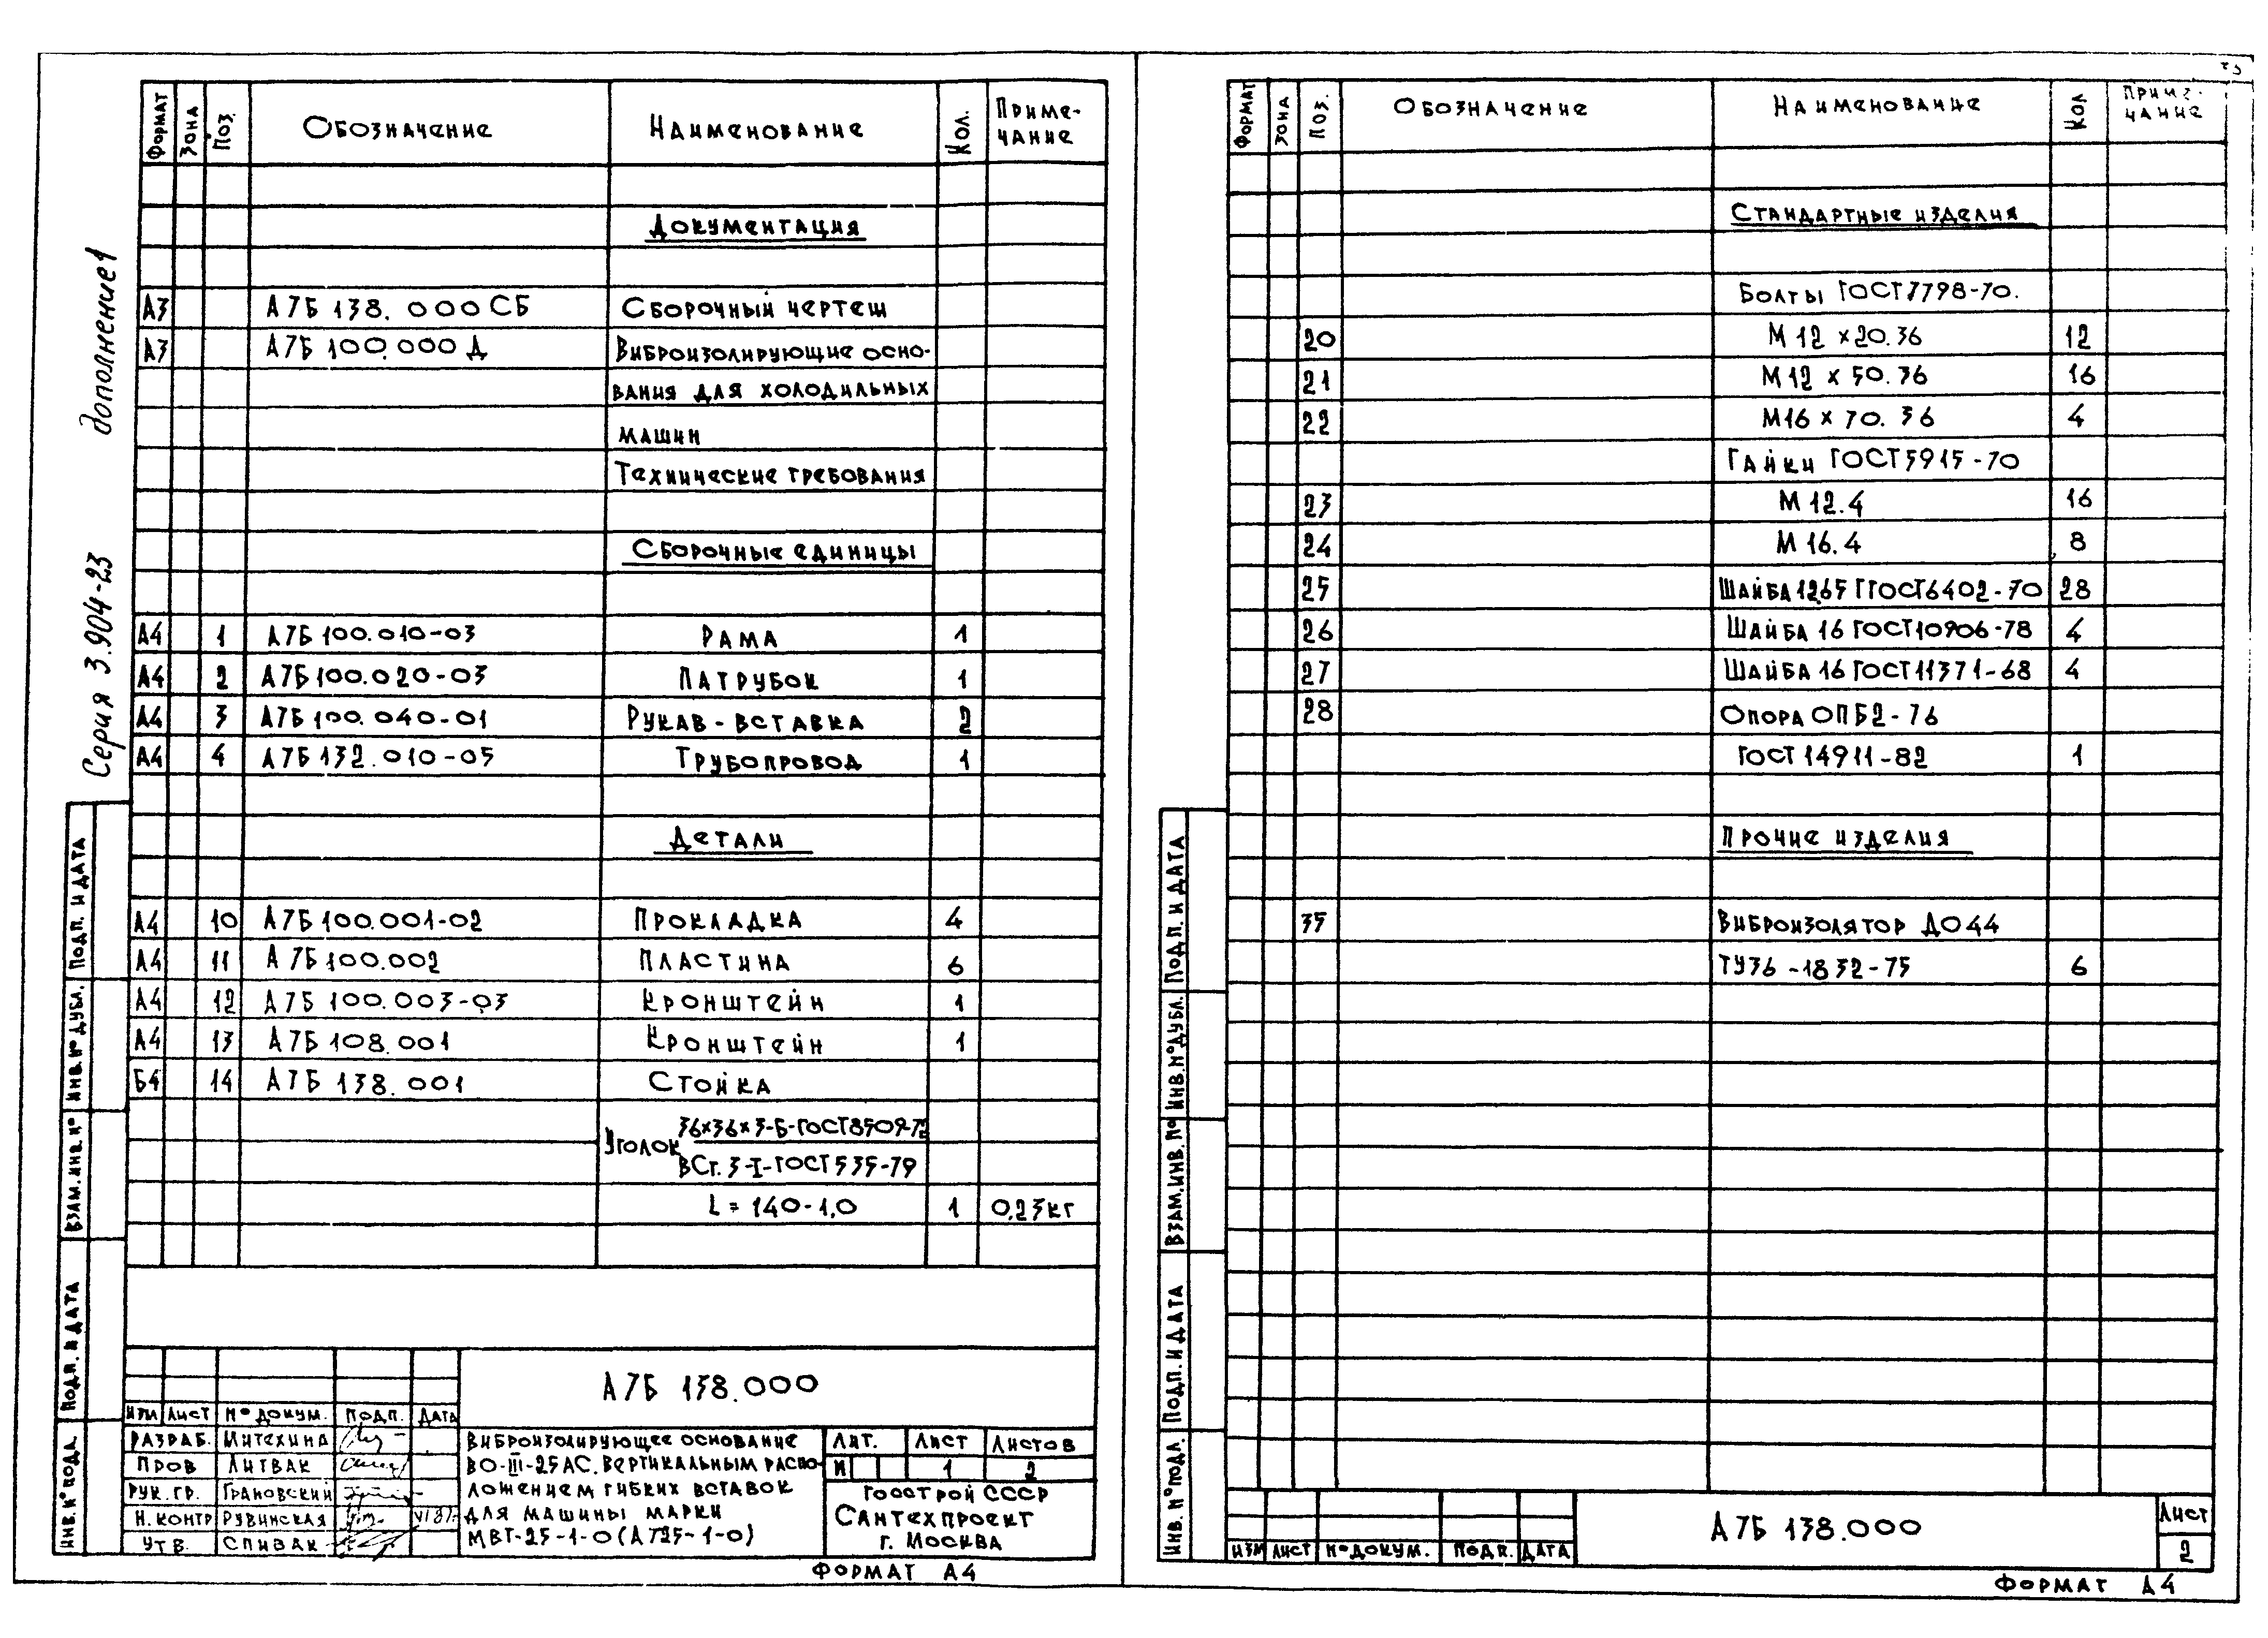 Серия 3.904-23 дополнение 1
Формат Зона Поз. Обозначение Наименование Кол. Приме-
чание
Документация
А3 А7Б 138.000 СБ Сборочный чертеш
А3 А7Б 100.000 Д Виброизолирующие осно-
вания для холодильных
машин
Технические требования
Сборочные единицы
А4 1 А7Б 100.010-03 Рама 1
А4 2 А7Б 100.020-03 Патрубок 1
А4 3 А7Б 100.040-01 Рукав-вставка 2
А4 4 А7Б 132.010-05 Трубопровод 1
Детали
А4 10 А7Б 100.001-02 Прокладка 4
А4 11 А7Б 100.002 Пластина 6
А4 12 А7Б 100.003-03 Кронштейн 1
А4 13 А7Б 108.001 Кронштейн 1
Б4 14 А7Б 138.001 Стойка
Уголок 36×36×3-Б-ГОСТ8509-72
ВСт.3-I-ГОСТ535-79
L=140-1,0 1 0,23кг
Инв.№подл. Подп. и дата Взам.инв.№ Инв.№дубл. Подп. и дата
А7Б 138.000
Изм Лист №докум. Подп. Дата
Разраб. Митехина
Пров Литвак
Рук.гр. Грановский
Н.контр Рувинская VI 87г.
Утв. Спивак
Виброизолирующее основание
ВО-III-25АС.вертикальным распо-
ложением гибких вставок
для машины марки
МВТ-25-1-0(АТ25-1-0)
Лит. Лист Листов
И 1 2
Госстрой СССР
Сантехпроект
г. Москва
Формат А4
Формат Зона Поз. Обозначение Наименование Кол Приме-
чание
Стандартные изделия
Болты ГОСТ7798-70.
20 М12×20.36 12
21 М12×50.36 16
22 М16×70.36 4
Гайки ГОСТ5915-70
23 М12.4 16
24 М16.4 8
25 Шайба 1265Г ГОСТ6402-70 28
26 Шайба 16 ГОСТ10906-78 4
27 Шайба 16 ГОСТ11371-68 4
28 Опора ОПБ2-76
ГОСТ14911-82 1
Прочие изделия
35 Виброизолятор ДО44
ТУ36-1832-75 6
Инв.№подл. Подп. и дата Взам.инв.№ Инв.№дубл. Подп. и дата
Изм Лист №докум. Подп. Дата
А7Б 138.000
Лист
2
Формат А4